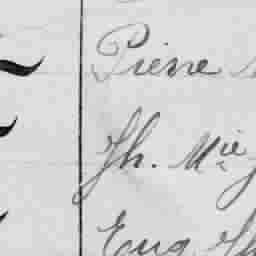 Pierre
Jh. Mie
Eug